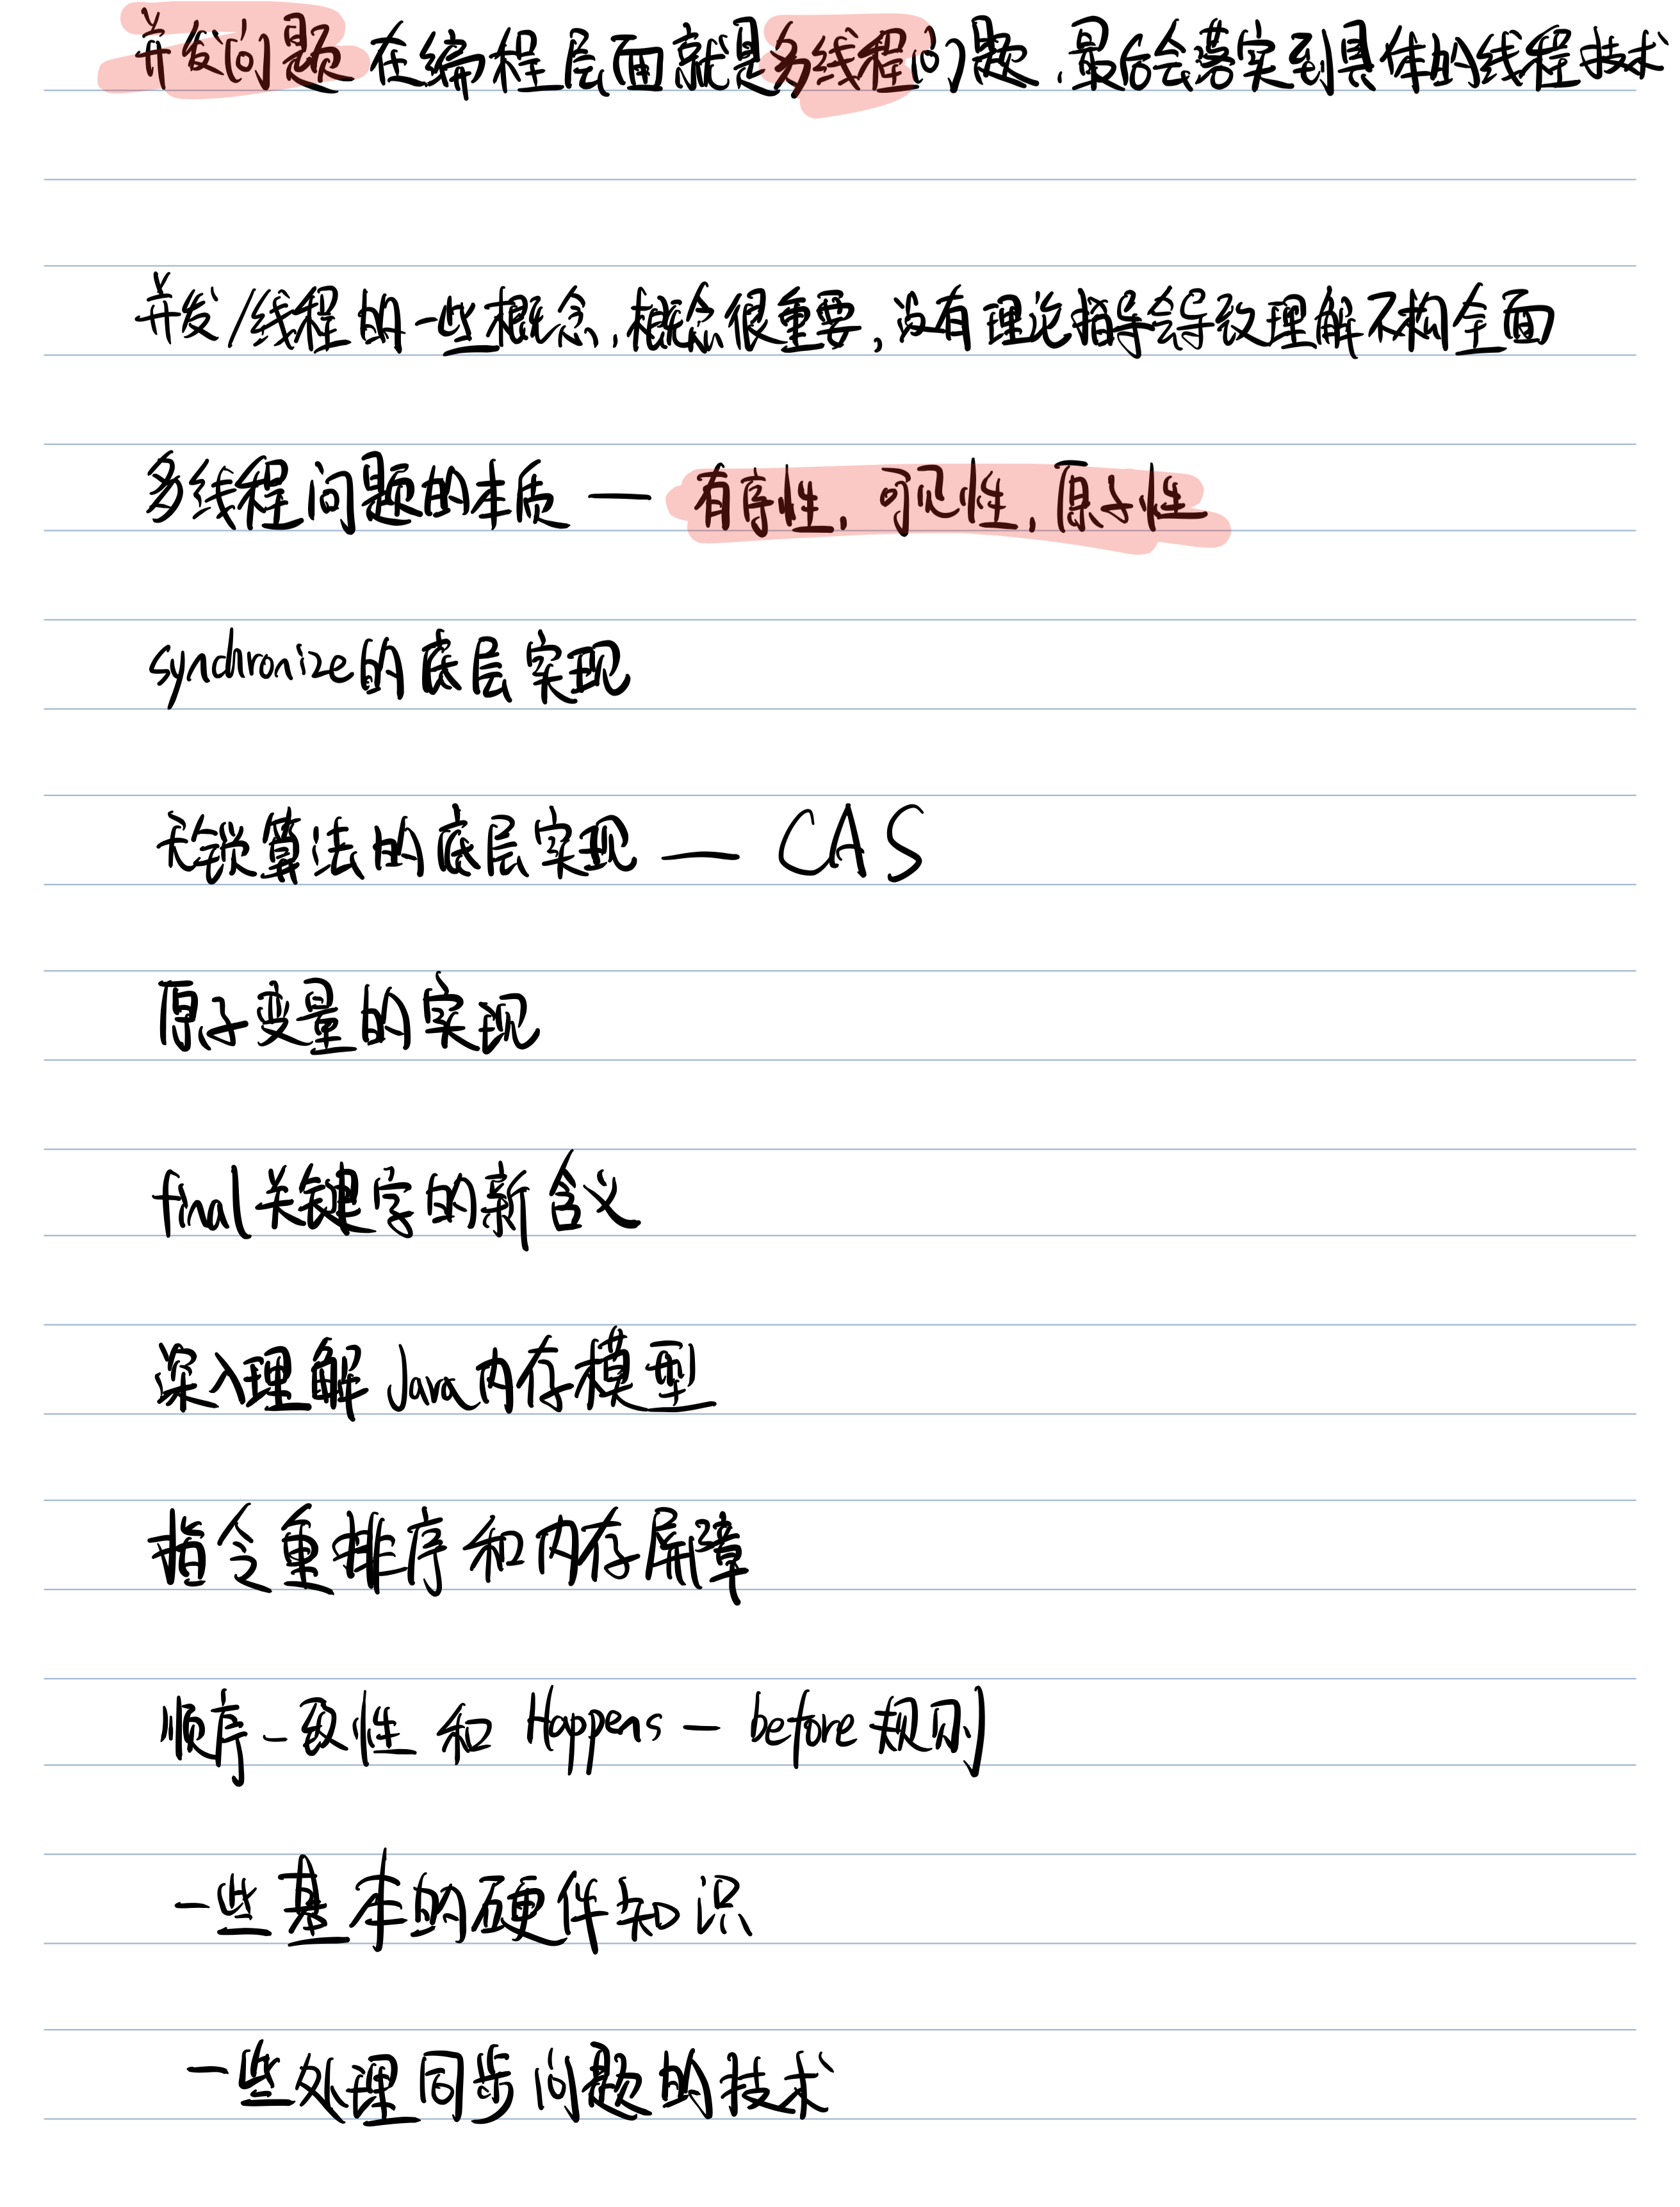 并发问题在编程层面就是多线程问题,最后会落实到具体的线程技术
并发/线程的一些概念,概念很重要,没有理论指导会导致理解不构全面
多线程问题的本质 — 有序性,可见性,原子性
synchronize的底层实现
无锁算法的底层实现 — CAS
原子变量的实现
final关键字的新含义
深入理解Java内存模型
指令重排序和内存屏障
顺序一致性 和 Happens — before规则
一些基本的硬件知识
一些处理同步问题的技术